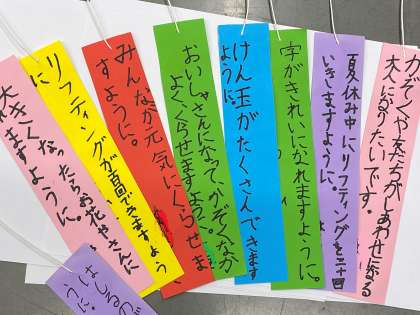 かぞくや友だちがしあわせになる
大人になりたいです。
夏休み中にリフティングを二十回
いきますように。
字がきれいになれますように。
けん玉がたくさんできます
ように。
おいしゃさんになって、かぞくなか
よく、くらせますように。
みんなが元気にくらせま
すように。
リフティングが百回できますよう
に
きくなったらお花やさんに
ますように。
はしるの
うに。